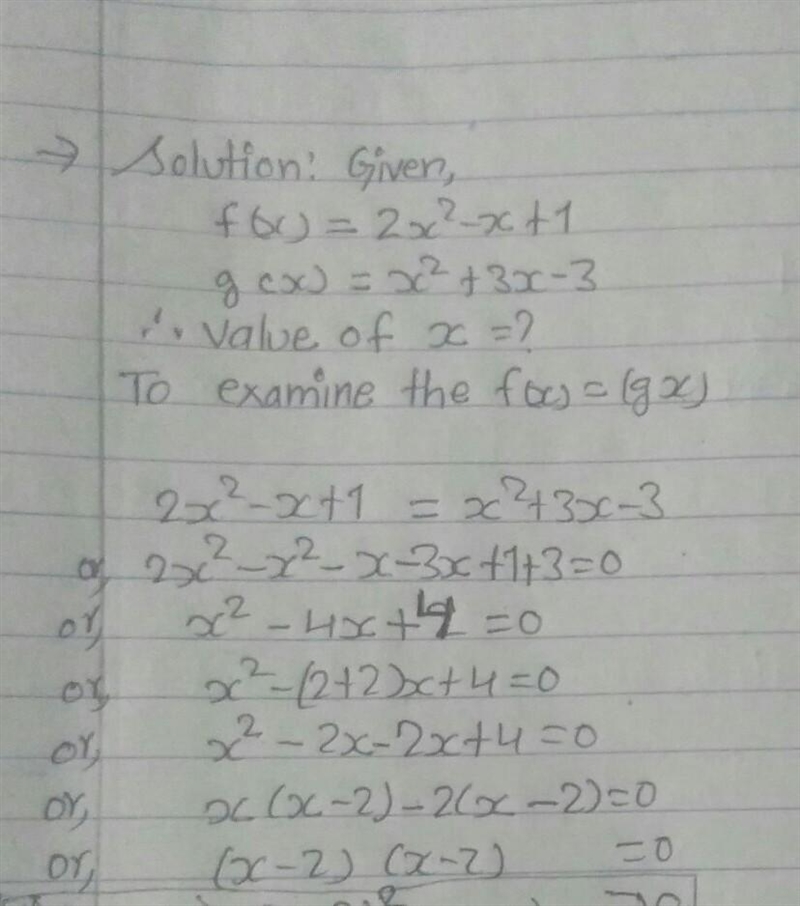 → Solution: Given,
f(x) = 2x²-x+1
g(x) = x²+3x-3
∴ value of x =?
To examine the f(x) = (gx)
2x²-x+1 = x²+3x-3
or, 2x²-x²-x-3x+1+3=0
or, x²-4x+4=0
or, x²-(2+2)x+4=0
or, x²-2x-2x+4=0
or, x(x-2)-2(x-2)=0
or, (x-2) (x-2) =0